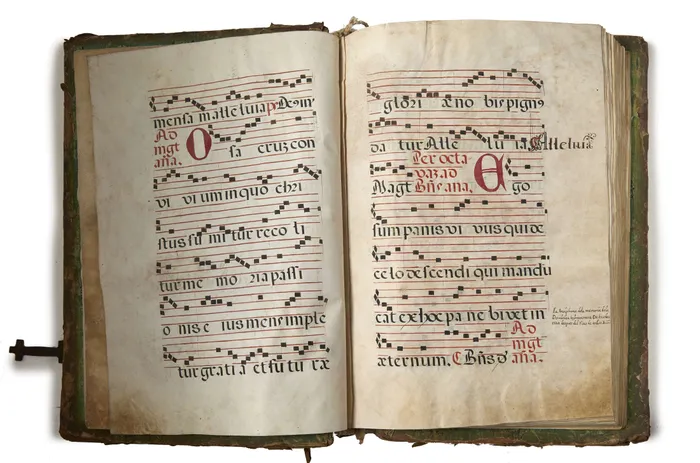 mensa m alleluia ps De9in
Ad
mgt
aña.
O sa cruz con
vi vi um in quo chri
stus su mi tur reco li
tur me mo ria passi
o nis e ius mens imple
tur grati a et fu tu ræ
glori æ no bis pign9
da tur Alle lu ia
Alleluia
Per octa
vaz. ad
Magt Bñs aña.
E go
sum panis vi vus qui de
celo descendi qui mandu
cat ex hoc pa ne bivet in
æternum. Bñs d
Ad
mgt
aña.